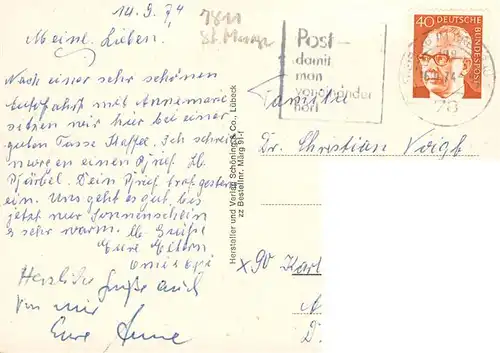 14.9.74
Meine Lieben.
Nach einer sehr schönen
Autofahrt mit Annemarie
sitzen wir hier bei einer
guten Tasse Kaffee. Ich schreibe
morgen einen Brief. Lb.
Bärbel. Dein Brief traf gestern
ein. Uns geht es gut. bis
jetzt nur Sonnenschein
& sehr warm. Lb Grüße
Eure Eltern
Omi Opi
Herzliche Grüße auch
von mir
Eure Anne
7811
St. Märgen
Post-
damit
man
voneinander
hört
40 DEUTSCHE
BUNDESPOST
78
Familie
Dr. Christian Voigt
Hersteller und Verlag Schöning & Co., Lübeck
zz Bestellnr. Märg 91-f
x90 Karl
A
D